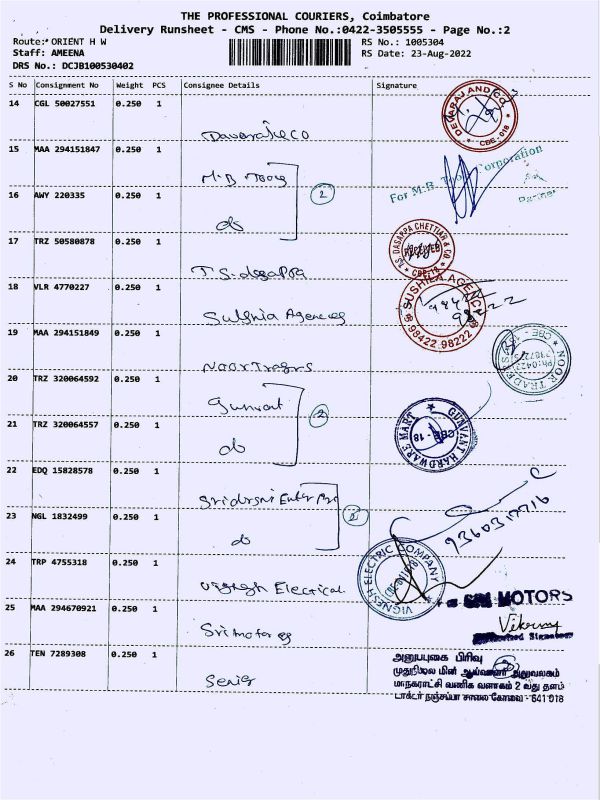 THE PROFESSIONAL COURIERS, Coimbatore
Delivery Runsheet - CMS - Phone No.:0422-3505555 - Page No.:2
Route: ORIENT H W
RS No.: 1005304
Staff: AMEENA
RS Date: 23-Aug-2022
DRS No.: DCJB100530402
S No Consignment No Weight PCS Consignee Details Signature
14 CGL 50027551 0.250 1
DEVARAJ AND CO. CBE-018
15 MAA 294151847 0.250 1
M.B Tools
For M.B. Tool Corporation
Partner
16 AWY 220335 0.250 1
do
2
17 TRZ 50580878 0.250 1
T.S. dasappa
T.S. DASAPPA CHETTIAR & CO
RECEIVED
CBE-18
18 VLR 4770227 0.250 1
Agencies
SUSHILA AGENCIES
98422 98222
19 MAA 294151849 0.250 1
NOOR TRADERS
20 TRZ 320064592 0.250 1
Gunvant
21 TRZ 320064557 0.250 1
do
2
GUNVANT HARDWARE MART
CBE - 18
22 EDQ 15828578 0.250 1
23 NGL 1832499 0.250 1
do
2
24 TRP 4755318 0.250 1
Electrical
VIGNESH ELECTRIC COMPANY
25 MAA 294670921 0.250 1
Sri motores
SRI MOTORS
26 TEN 7289308 0.250 1
அனுப்புகை பிரிவு
முதுநிலை மின் ஆய்வாளர் அலுவலகம்
மாநகராட்சி வணிக வளாகம் 2 வது தளம்
டாக்டர் நஞ்சப்பா சாலை கோவை - 641 018